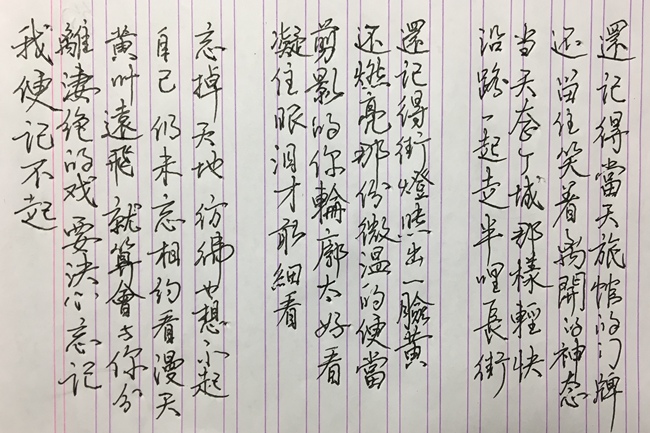 還記得當天旅館的门牌
还留住笑着離開的神态
当天整个城那樣輕快
沿路一起走半哩長街
還記得街燈照出一臉黃
还燃亮那份微温的便當
剪影的你輪廓太好看
凝住眼泪才敢細看
忘掉天地 彷彿也想不起
自己 仍未忘相約看漫天
黄叶遠飛 就算會与你分
離凄绝的戏 要决心忘記
我便記不起